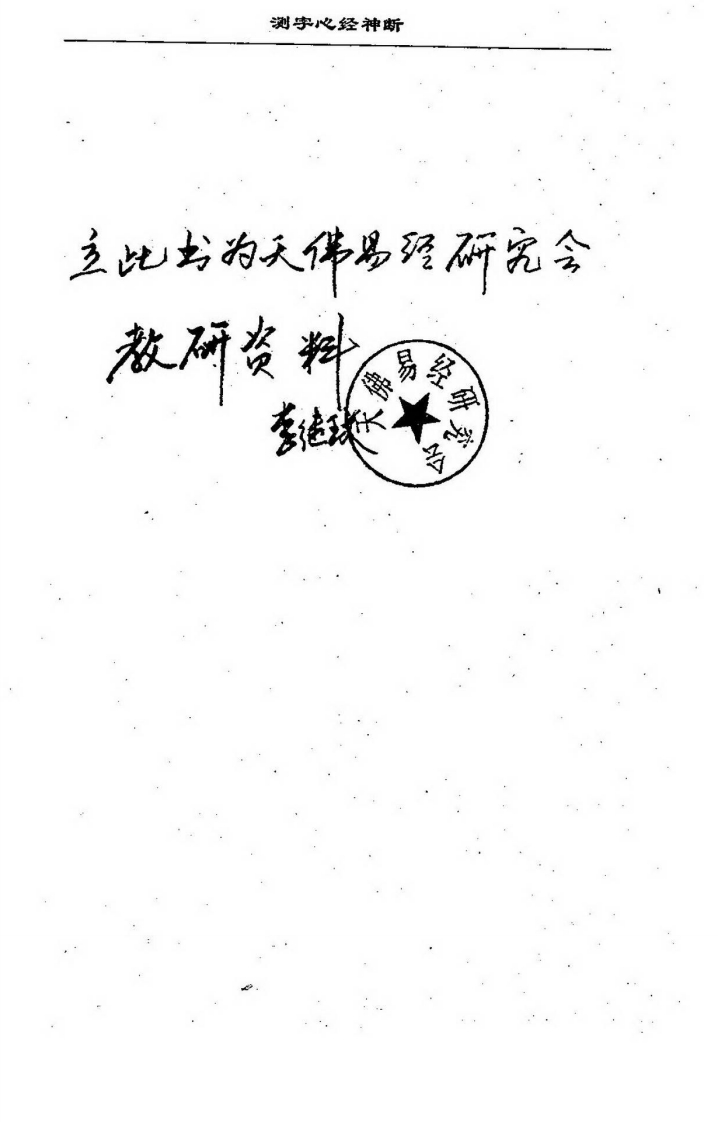 测字心经神断
立此书为天佛易经研究会
教研资料
李继
天佛易经研究会